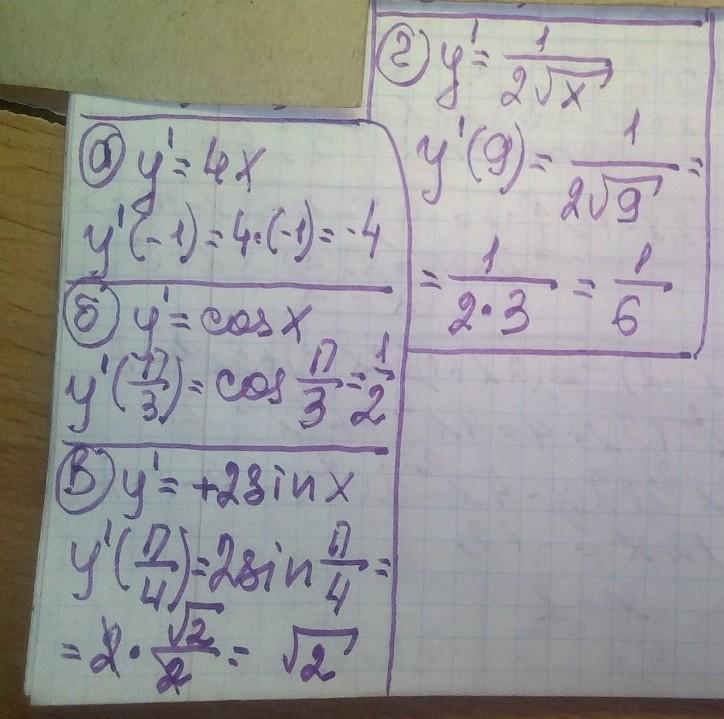 а) y' = 4x
y'(-1) = 4·(-1) = -4
б) y' = cos x
y'(π/3) = cos π/3 = 1/2
в) y' = +2 sin x
y'(π/4) = 2 sin π/4 =
= 2 · √2/2 = √2
г) y' = 1/(2√x)
y'(9) = 1/(2√9) =
= 1/(2·3) = 1/6